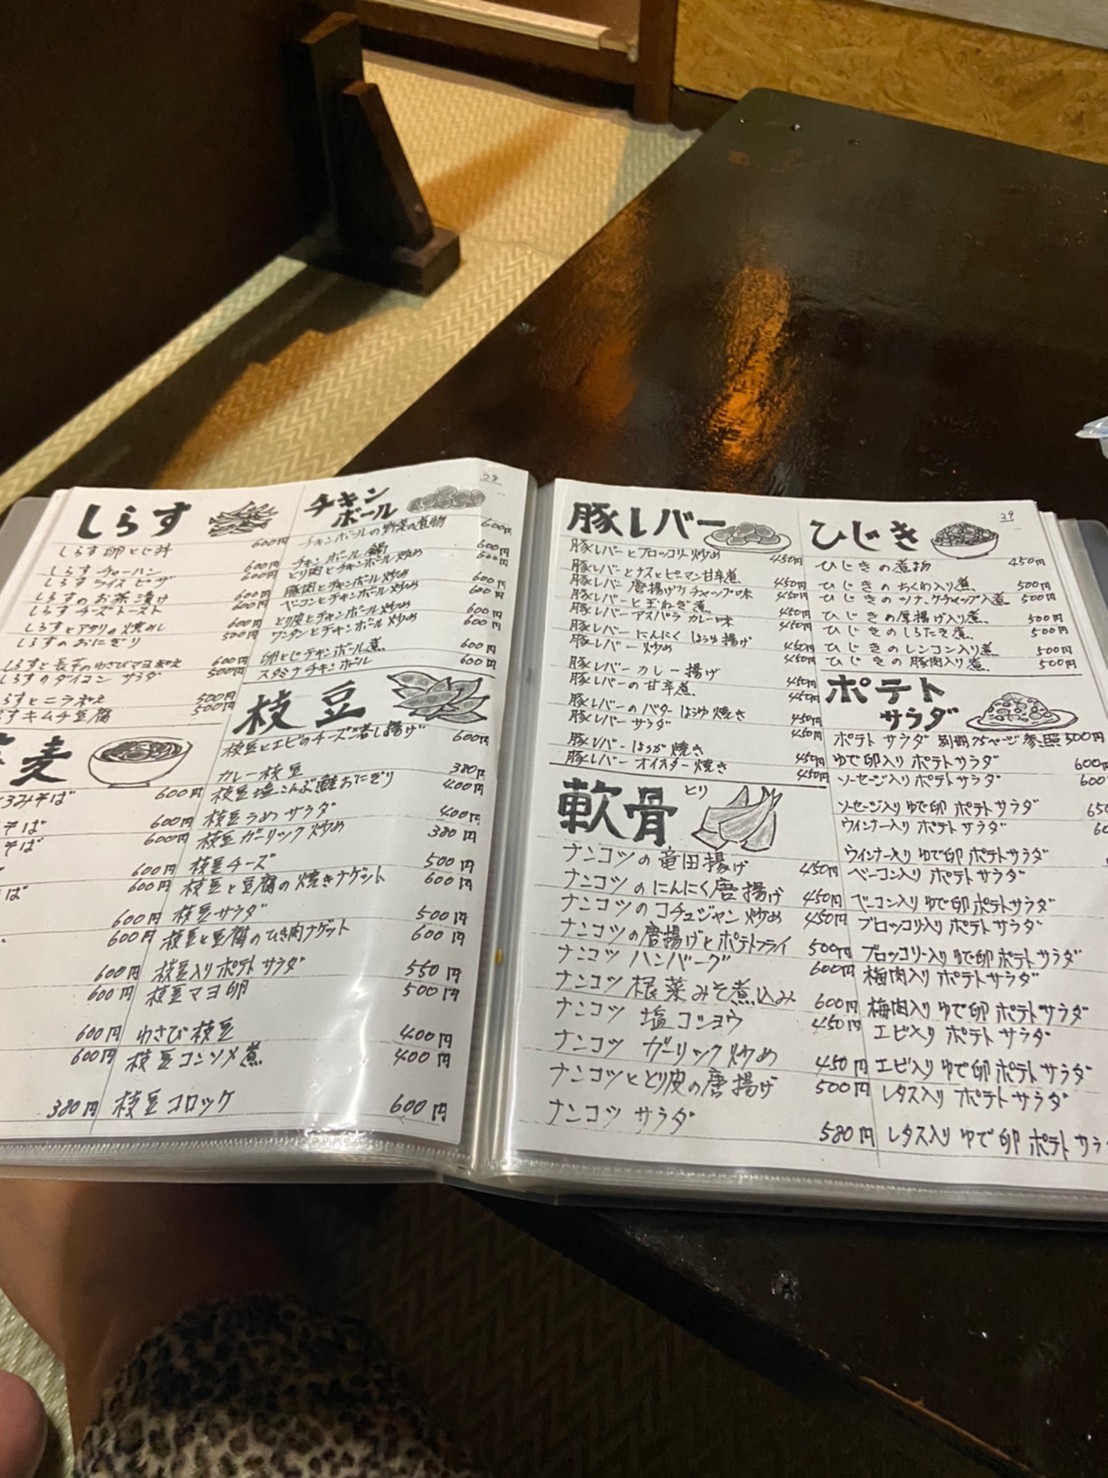 しらす
しらす卵とじ丼 600円
しらす チャーハン 600円
しらす ライス ピザ 600円
しらすのお茶漬け 600円
しらす チーズトースト 600円
しらすのおにぎり 500円
しらすと長芋のわさびマヨ和え 600円
しらすのダイコン サラダ 500円
らすとニラ和え 500円
すキムチ豆腐 500円
麦
ろみそば 600円
そば 600円
そば 600円
600円
ば 600円
600円
600円
600円
600円
600円
600円
380円
チキンボール
チキンボールの野菜の煮物 600円
チキンボール鍋 600円
とり肉とチキンボール炒め 600円
豚肉とチキンボール炒め 600円
ベーコンとチキンボール炒め 600円
とり皮とチキンボール炒め 600円
ワンタンとチキンボール炒め 600円
卵とじチキンボール煮 600円
スタミナチキンボール 600円
枝豆
枝豆とエビのチーズ落し揚げ 600円
カレー枝豆 380円
枝豆塩こんぶ鮭おにぎり 400円
枝豆うめサラダ 400円
枝豆ガーリック炒め 380円
枝豆チーズ 500円
枝豆と豆腐の焼きナゲット 600円
枝豆サラダ 500円
枝豆と豆腐のひき肉ナゲット 600円
枝豆入りポテトサラダ 550円
枝豆マヨ卵 500円
わさび枝豆 400円
枝豆コンソメ煮 400円
枝豆コロッケ 600円
豚レバー
豚レバーとブロッコリー炒め 450円
豚レバーとナスとピーマン甘辛煮 450円
豚レバー 唐揚げケチャップ味 450円
豚レバーと玉ねぎ煮 450円
豚レバーアスパラ カレー味 450円
豚レバー にんにく しょうゆ揚げ 450円
豚レバー 炒め 450円
豚レバー カレー揚げ 450円
豚レバーの 甘辛煮 450円
豚レバーのバターしょうゆ焼き 450円
豚レバー サラダ 450円
豚レバー しょうが焼き 450円
豚レバー オイスター焼き 450円
軟骨 とり
ナンコツの竜田揚げ 450円
ナンコツのにんにく唐揚げ 450円
ナンコツのコチュジャン炒め 450円
ナンコツの唐揚げとポテトフライ 500円
ナンコツ ハンバーグ 600円
ナンコツ 根菜みそ煮込み 600円
ナンコツ 塩コショウ 450円
ナンコツ ガーリック炒め 450円
ナンコツととり皮の唐揚げ 500円
ナンコツ サラダ 580円
29
ひじき
ひじきの煮物 450円
ひじきのちくわ入り煮 500円
ひじきのツナ、ケチャップ入煮 500円
ひじきの厚揚げ入り煮 500円
ひじきのしらたき煮 500円
ひじきのレンコン入り煮 500円
ひじきの豚肉入り煮 500円
ポテトサラダ
ポテトサラダ 別冊75ページ参照 500円
ゆで卵入りポテトサラダ 600円
ソーセージ入りポテトサラダ 600
ソーセージ入りゆで卵ポテトサラダ 650
ウインナー入りポテトサラダ
ウインナー入りゆで卵ポテトサラダ
ベーコン入りポテトサラダ
ベーコン入りゆで卵ポテトサラダ
ブロッコリ入りポテトサラダ
ブロッコリー入りゆで卵ポテトサラダ
梅肉入りポテトサラダ
梅肉入りゆで卵ポテトサラダ
エビ入りポテトサラダ
エビ入りゆで卵ポテトサラダ
レタス入りポテトサラダ
レタス入りゆで卵ポテトサラ